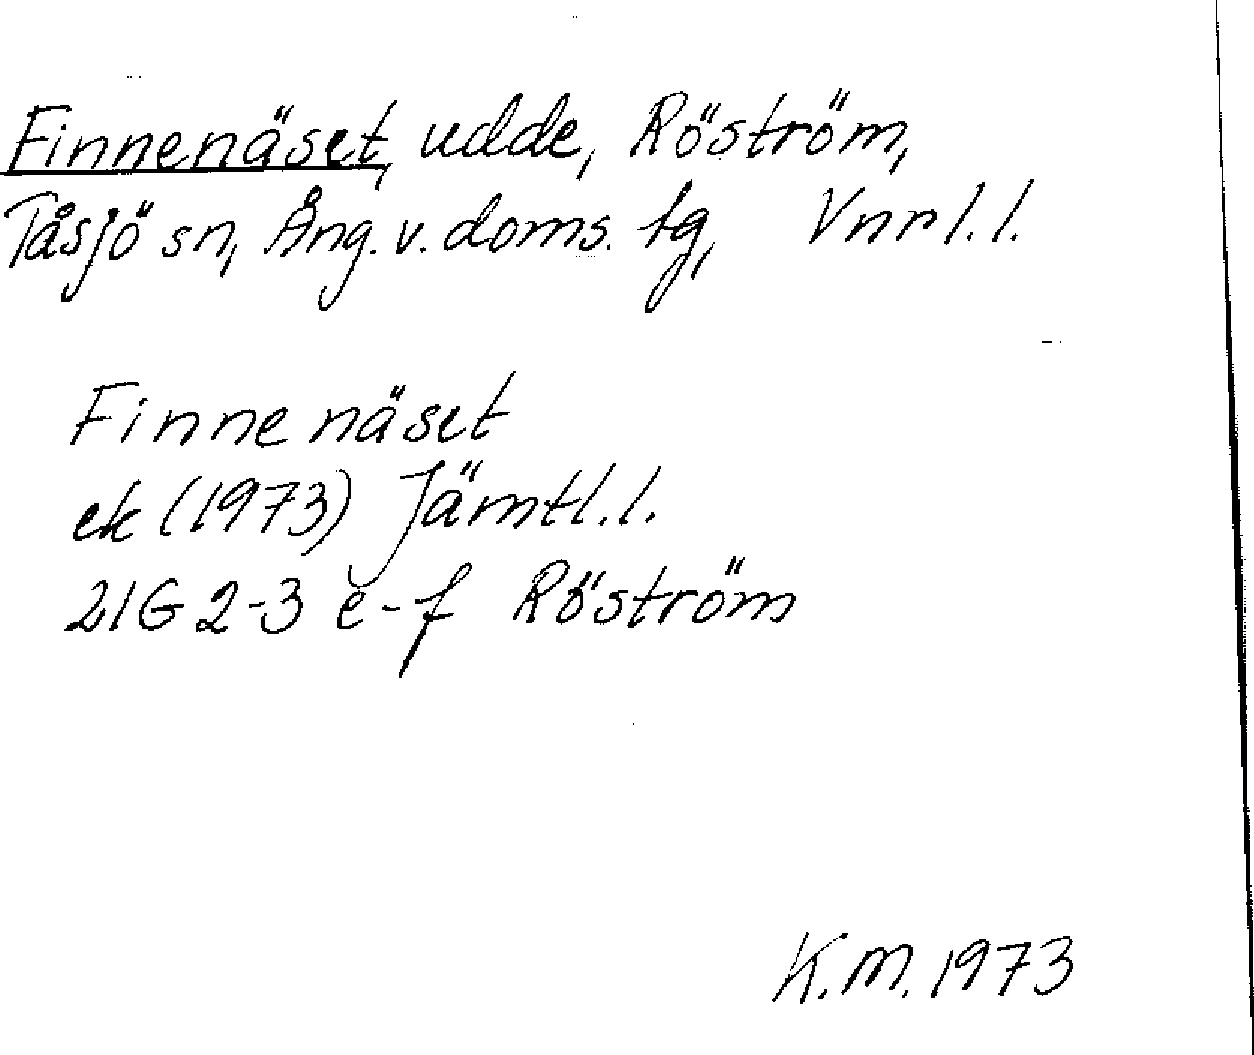 Finnenäset, udde, Röström,
Tåsjö sn, Ång. v. doms. tg, Vnrl. l.
Finnenäset
ek (1973) Jämtl. l.
21G 2-3 e-f Röström
K.M. 1973